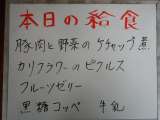 本日の給食
豚肉と野菜のケチャップ煮
カリフラワーのピクルス
フルーツゼリー
黒糖コッペ 牛乳